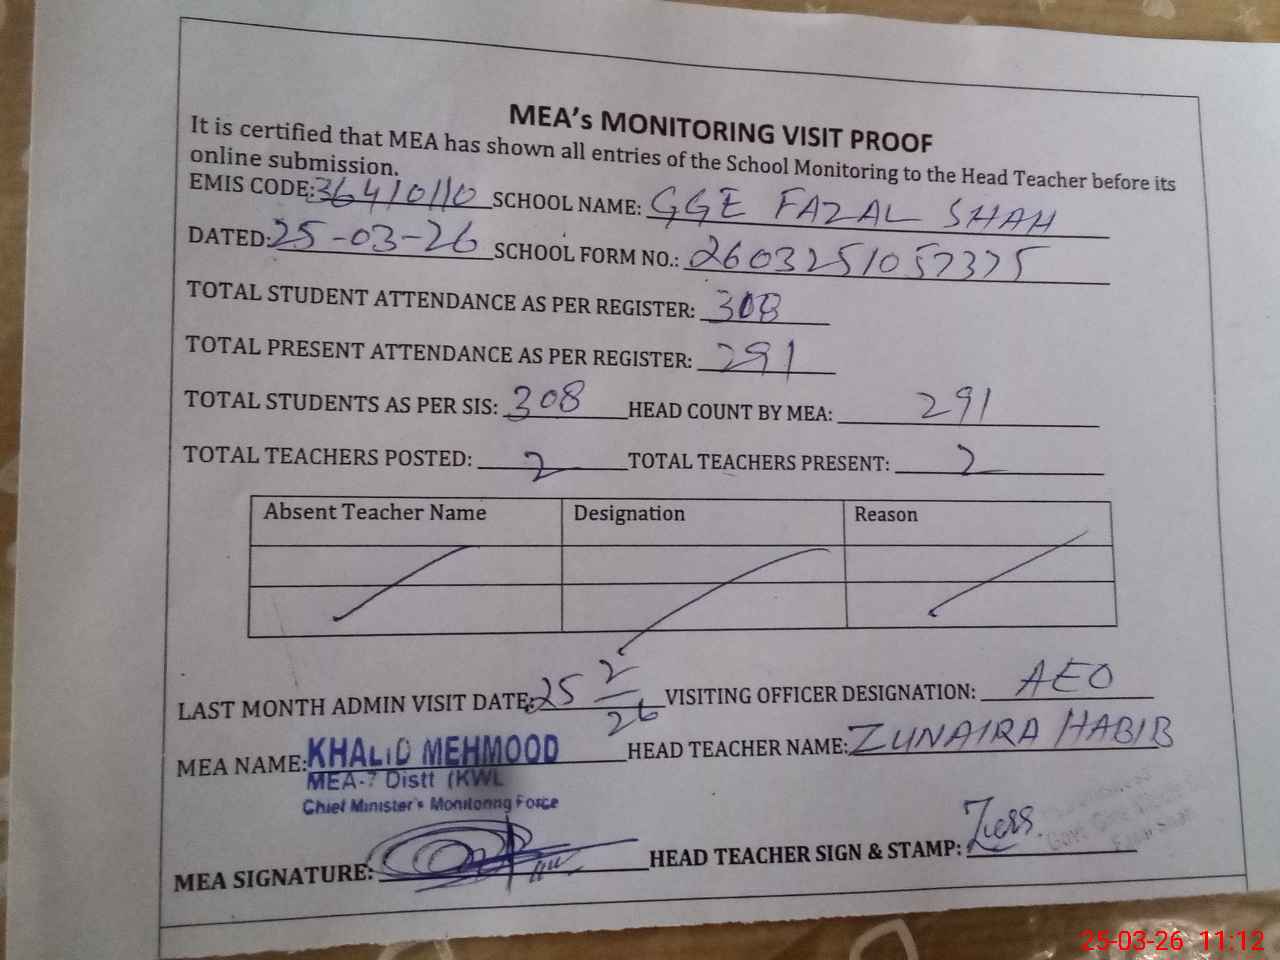 MEA's MONITORING VISIT PROOF
It is certified that MEA has shown all entries of the School Monitoring to the Head Teacher before its
online submission.
EMIS CODE: 36410110 SCHOOL NAME: GGE FAZAL SHAH
DATED: 25-03-26 SCHOOL FORM NO.: 2603251057375
TOTAL STUDENT ATTENDANCE AS PER REGISTER: 308
TOTAL PRESENT ATTENDANCE AS PER REGISTER: 291
TOTAL STUDENTS AS PER SIS: 308 HEAD COUNT BY MEA: 291
TOTAL TEACHERS POSTED: 2 TOTAL TEACHERS PRESENT: 2
Absent Teacher Name Designation Reason
LAST MONTH ADMIN VISIT DATE: 25 2/26 VISITING OFFICER DESIGNATION: AEO
MEA NAME: KHALID MEHMOOD HEAD TEACHER NAME: ZUNAIRA HABIB
MEA-7 Distt (KWL
Chief Minister's Monitoring Force
MEA SIGNATURE: HEAD TEACHER SIGN & STAMP:
25-03-26 11:12